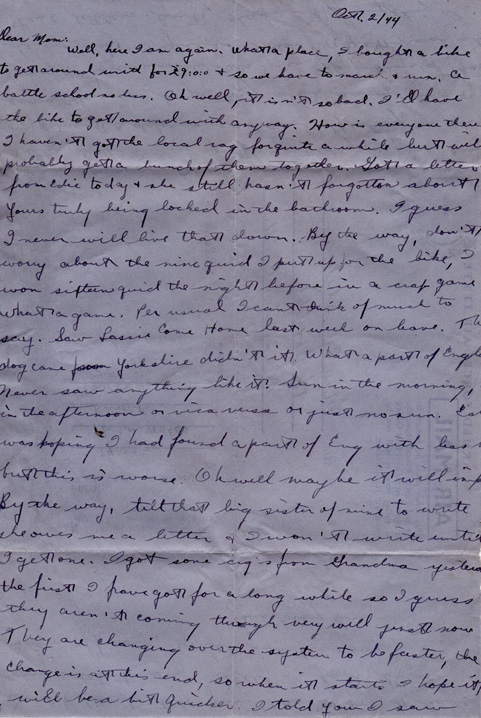 Oct. 2/44
Dear Mom:
Well, here I am again. What a place, I bought a bike
to get around with for £9:0:0 & so we have to marc & run. a
battle school no less. Oh well, it isn't so bad. I'll have
the bike to get around with anyway. How is everyone there
I haven't got the local rag for quite a while but will
probably get a bunch of them together. Got a letter
from Edie today & she still hasn't forgotten about
Yours truly being locked in the bathroom. I guess
I never will live that down. By the way, don't
worry about the nine quid I put up for the bike, I
won sixteen quid the night before in a crap game
what a game. Per usual I can't think of much to
say. Saw Lassie Come Home last week on leave. Th
dog came from Yorkshire didn't it. What a part of Engl
Never saw anything like it. Sun in the morning,
in the afternoon or vica versa or just no sun.
was hoping I had found a part of Eng with less
but this is worse. Oh well maybe it will imp
By the way, tell that big sister of mine to write
she owes me a letter & I won't write until
I get one. I got some cig's from Grandma yester
the first I have got for a long while so I guess
they aren't coming through very well just now
They are changing over the system to be faster, the
change is at this end, so when it starts I hope it
will be a bit quicker. I told you I saw